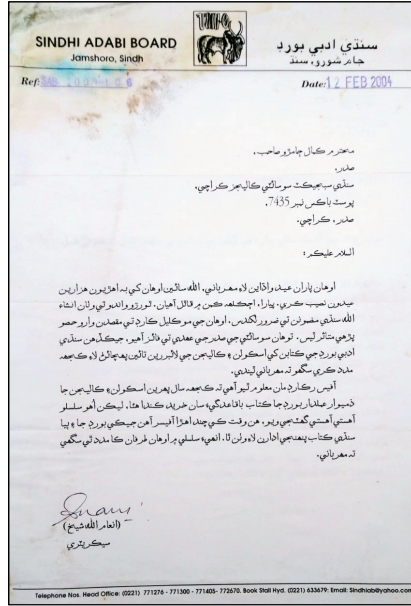 SINDHI ADABI BOARD
Jamshoro, Sindh
سنڌي ادبي بورڊ
ڄام شورو، سنڌ
Ref:
Date: 12 FEB 2004
محترم ڪمال ڄامڙو صاحب،
صدر،
سنڌي سبجيڪٽ سوسائٽي ڪاليجز ڪراچي،
پوسٽ باڪس نمبر 7435،
صدر، ڪراچي.
السلام عليڪم:
اوهان پاران عيد واڌاين لاءِ مهرباني. الله سائين اوهان کي به اهڙيون هزارين
عيدون نصيب ڪري. پيارا، اڄڪلهه ڪمن ۾ قائل آهيان. ٿورڙو واندو ٿي وٺان انشاءَ
الله سنڌي مضمونن تي ضرور لکندس. اوهان جي موڪليل ڪارڊ تي مقصدن وارو حصو
پڙهي متاثر ٿيس. توهان سوسائٽي جي صدر جي عهدي تي فائز آهيو. جيڪڏهن سنڌي
ادبي بورڊ جي ڪتابن کي اسڪولن ۽ ڪاليجن جي لائبريرين تائين پهچائڻ لاءِ ڪجهه
مدد ڪري سگهو ته مهرباني ٿيندي.
آفيس رڪارڊ مان معلوم ٿيو آهي ته ڪجهه سال پهرين اسڪولن ۽ ڪاليجن جا
ذميوار عملدار بورڊ جا ڪتاب باقاعدگيءَ سان خريد ڪندا هئا. ليڪن اهو سلسلو
آهستي آهستي گهٽبي ويو. هن وقت ڪي چند اهڙا آفيسر آهن جيڪي بورڊ جا ۽ ٻيا
سنڌي ڪتاب پنهنجي ادارن لاءِ وٺن ٿا. انهيءَ سلسلي ۾ اوهان طرفان ڪا مدد ٿي سگهي
ته مهرباني.
(انعام الله شيخ)
سيڪريٽري
Telephone Nos. Head Office: (0221) 771276 - 771300 - 771405- 772670. Book Stall Hyd. (0221) 633679: Email: Sindhiab@yahoo.com